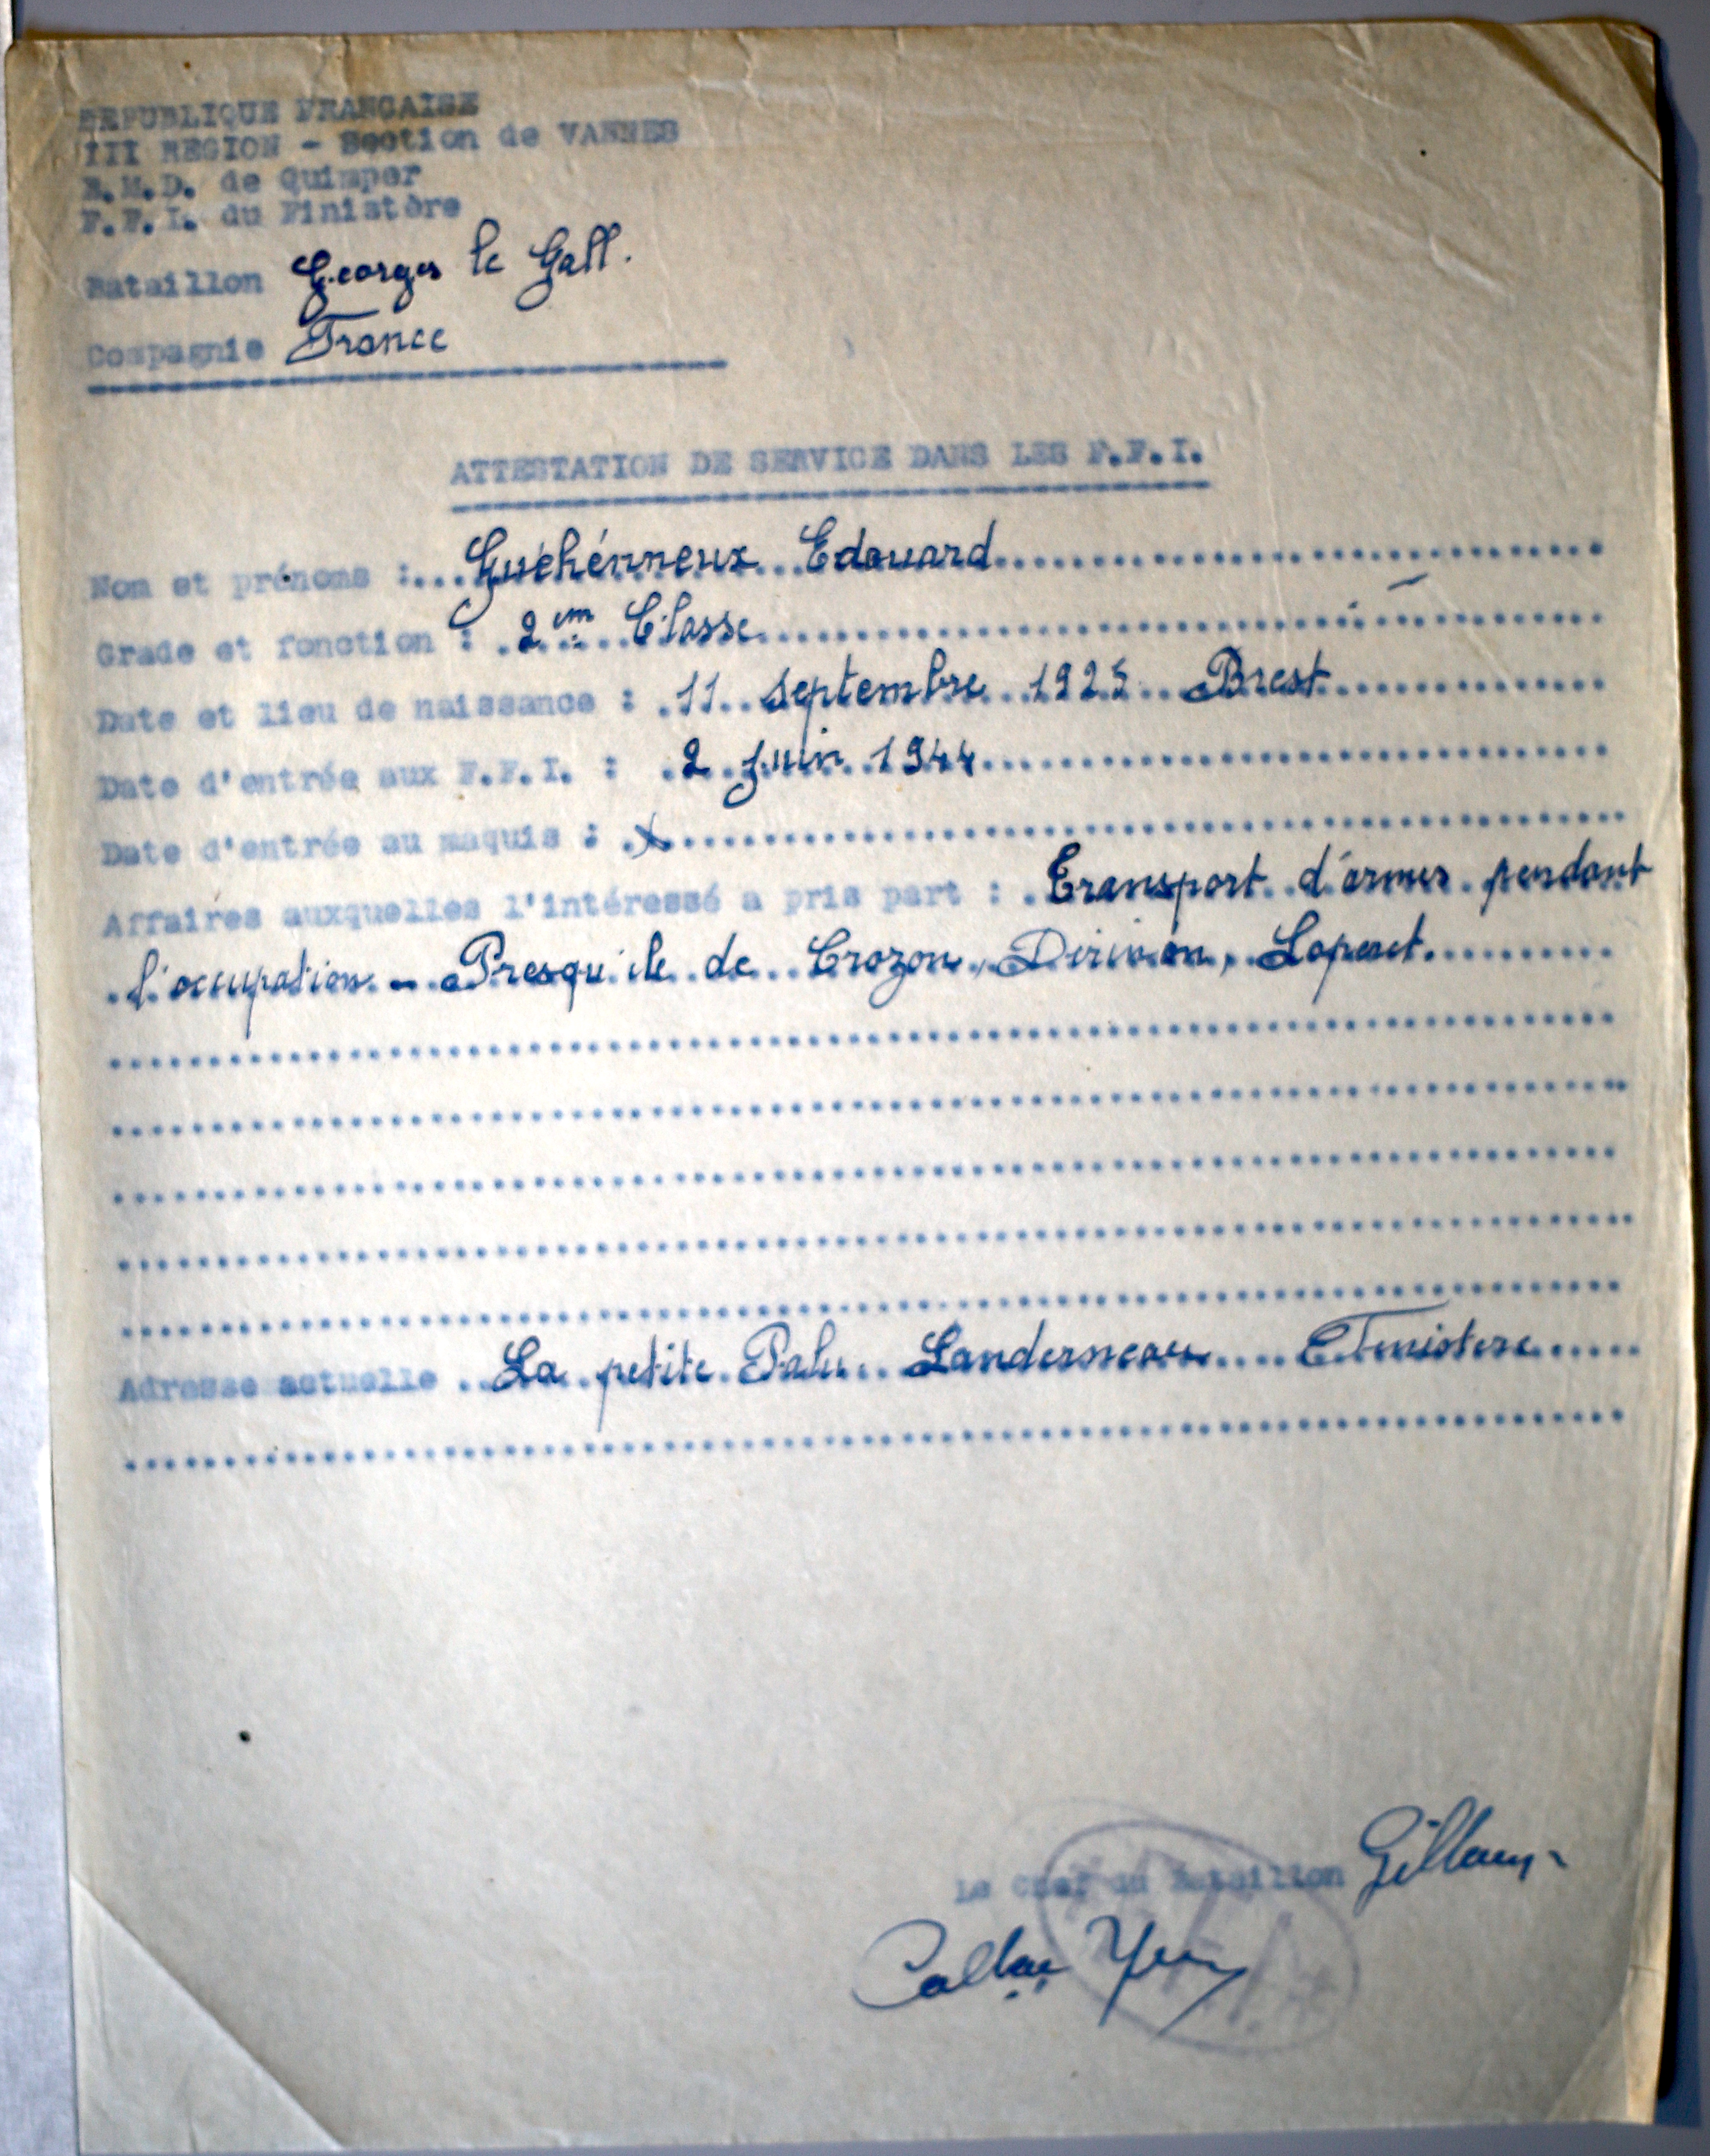 REPUBLIQUE FRANCAISE
III REGION - Section de VANNES
E.M.D. de Quimper
F.F.I. du Finistère
Bataillon Georges le Gall.
Compagnie France
ATTESTATION DE SERVICE DANS LES F.F.I.
Nom et prénoms : Guéhénneux Edouard
Grade et fonction : 2em Classe
Date et lieu de naissance : 11 septembre 1925 Brest
Date d'entrée aux F.F.I. : 2 Juin 1944
Date d'entrée au maquis : X
Affaires auxquelles l'intéressé a pris part : Transport d'armes pendant
l'occupation - Presqu'ile de Crozon, Dirinon, Loperet.
Adresse actuelle La petite Palu Landerneau Finistere
Le Chef du Bataillon